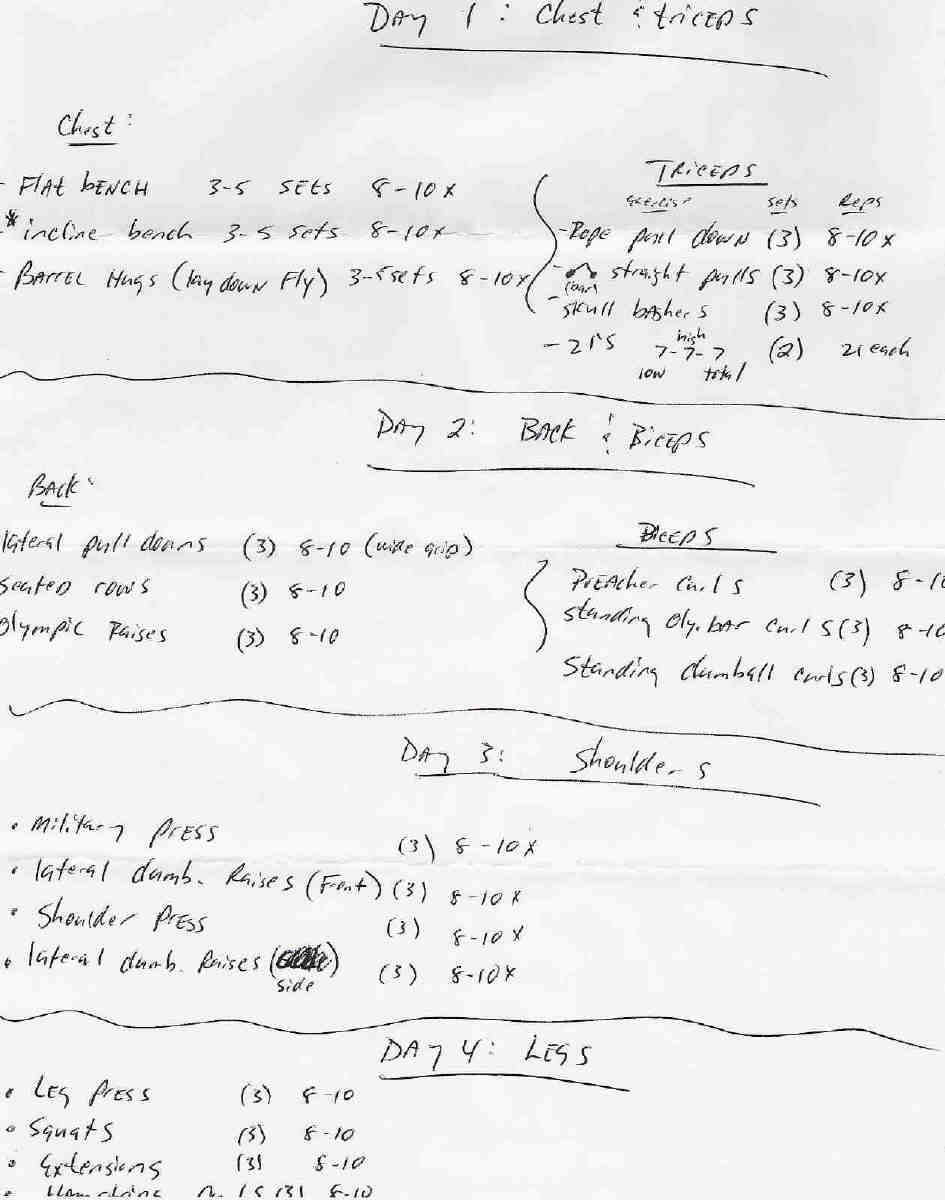 Day 1: Chest & triceps
Chest:
- Flat bench 3-5 sets 8-10x
-* incline bench 3-5 sets 8-10x
- Barrel Hugs (lay down Fly) 3-5 sets 8-10x
Triceps
exercise sets Reps
- Rope pull down (3) 8-10x
- straight pulls (3) 8-10x
(bar)
- skull bashers (3) 8-10x
high
- 21's 7-7-7 (2) 21 each
low total
Day 2: Back & Biceps
Back:
lateral pull downs (3) 8-10 (wide grip)
Seated rows (3) 8-10
Olympic Raises (3) 8-10
Biceps
Preacher Curls (3) 8-10
standing Oly. bar curls (3) 8-10
Standing dumball curls (3) 8-10
Day 3: Shoulders
• Military Press (3) 8-10x
• lateral dumb. Raises (Front) (3) 8-10x
• Shoulder Press (3) 8-10x
• lateral dumb. Raises ( ) (3) 8-10x
side
Day 4: Legs
• Leg Press (3) 8-10
• Squats (3) 8-10
• Extensions (3) 8-10
• Hamstring Curls (3) 8-10